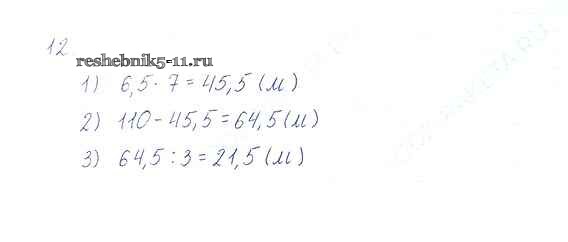 12
reshebnik5-11.ru
1) 6,5 · 7 = 45,5 (м)
2) 110 - 45,5 = 64,5 (м)
3) 64,5 : 3 = 21,5 (м)